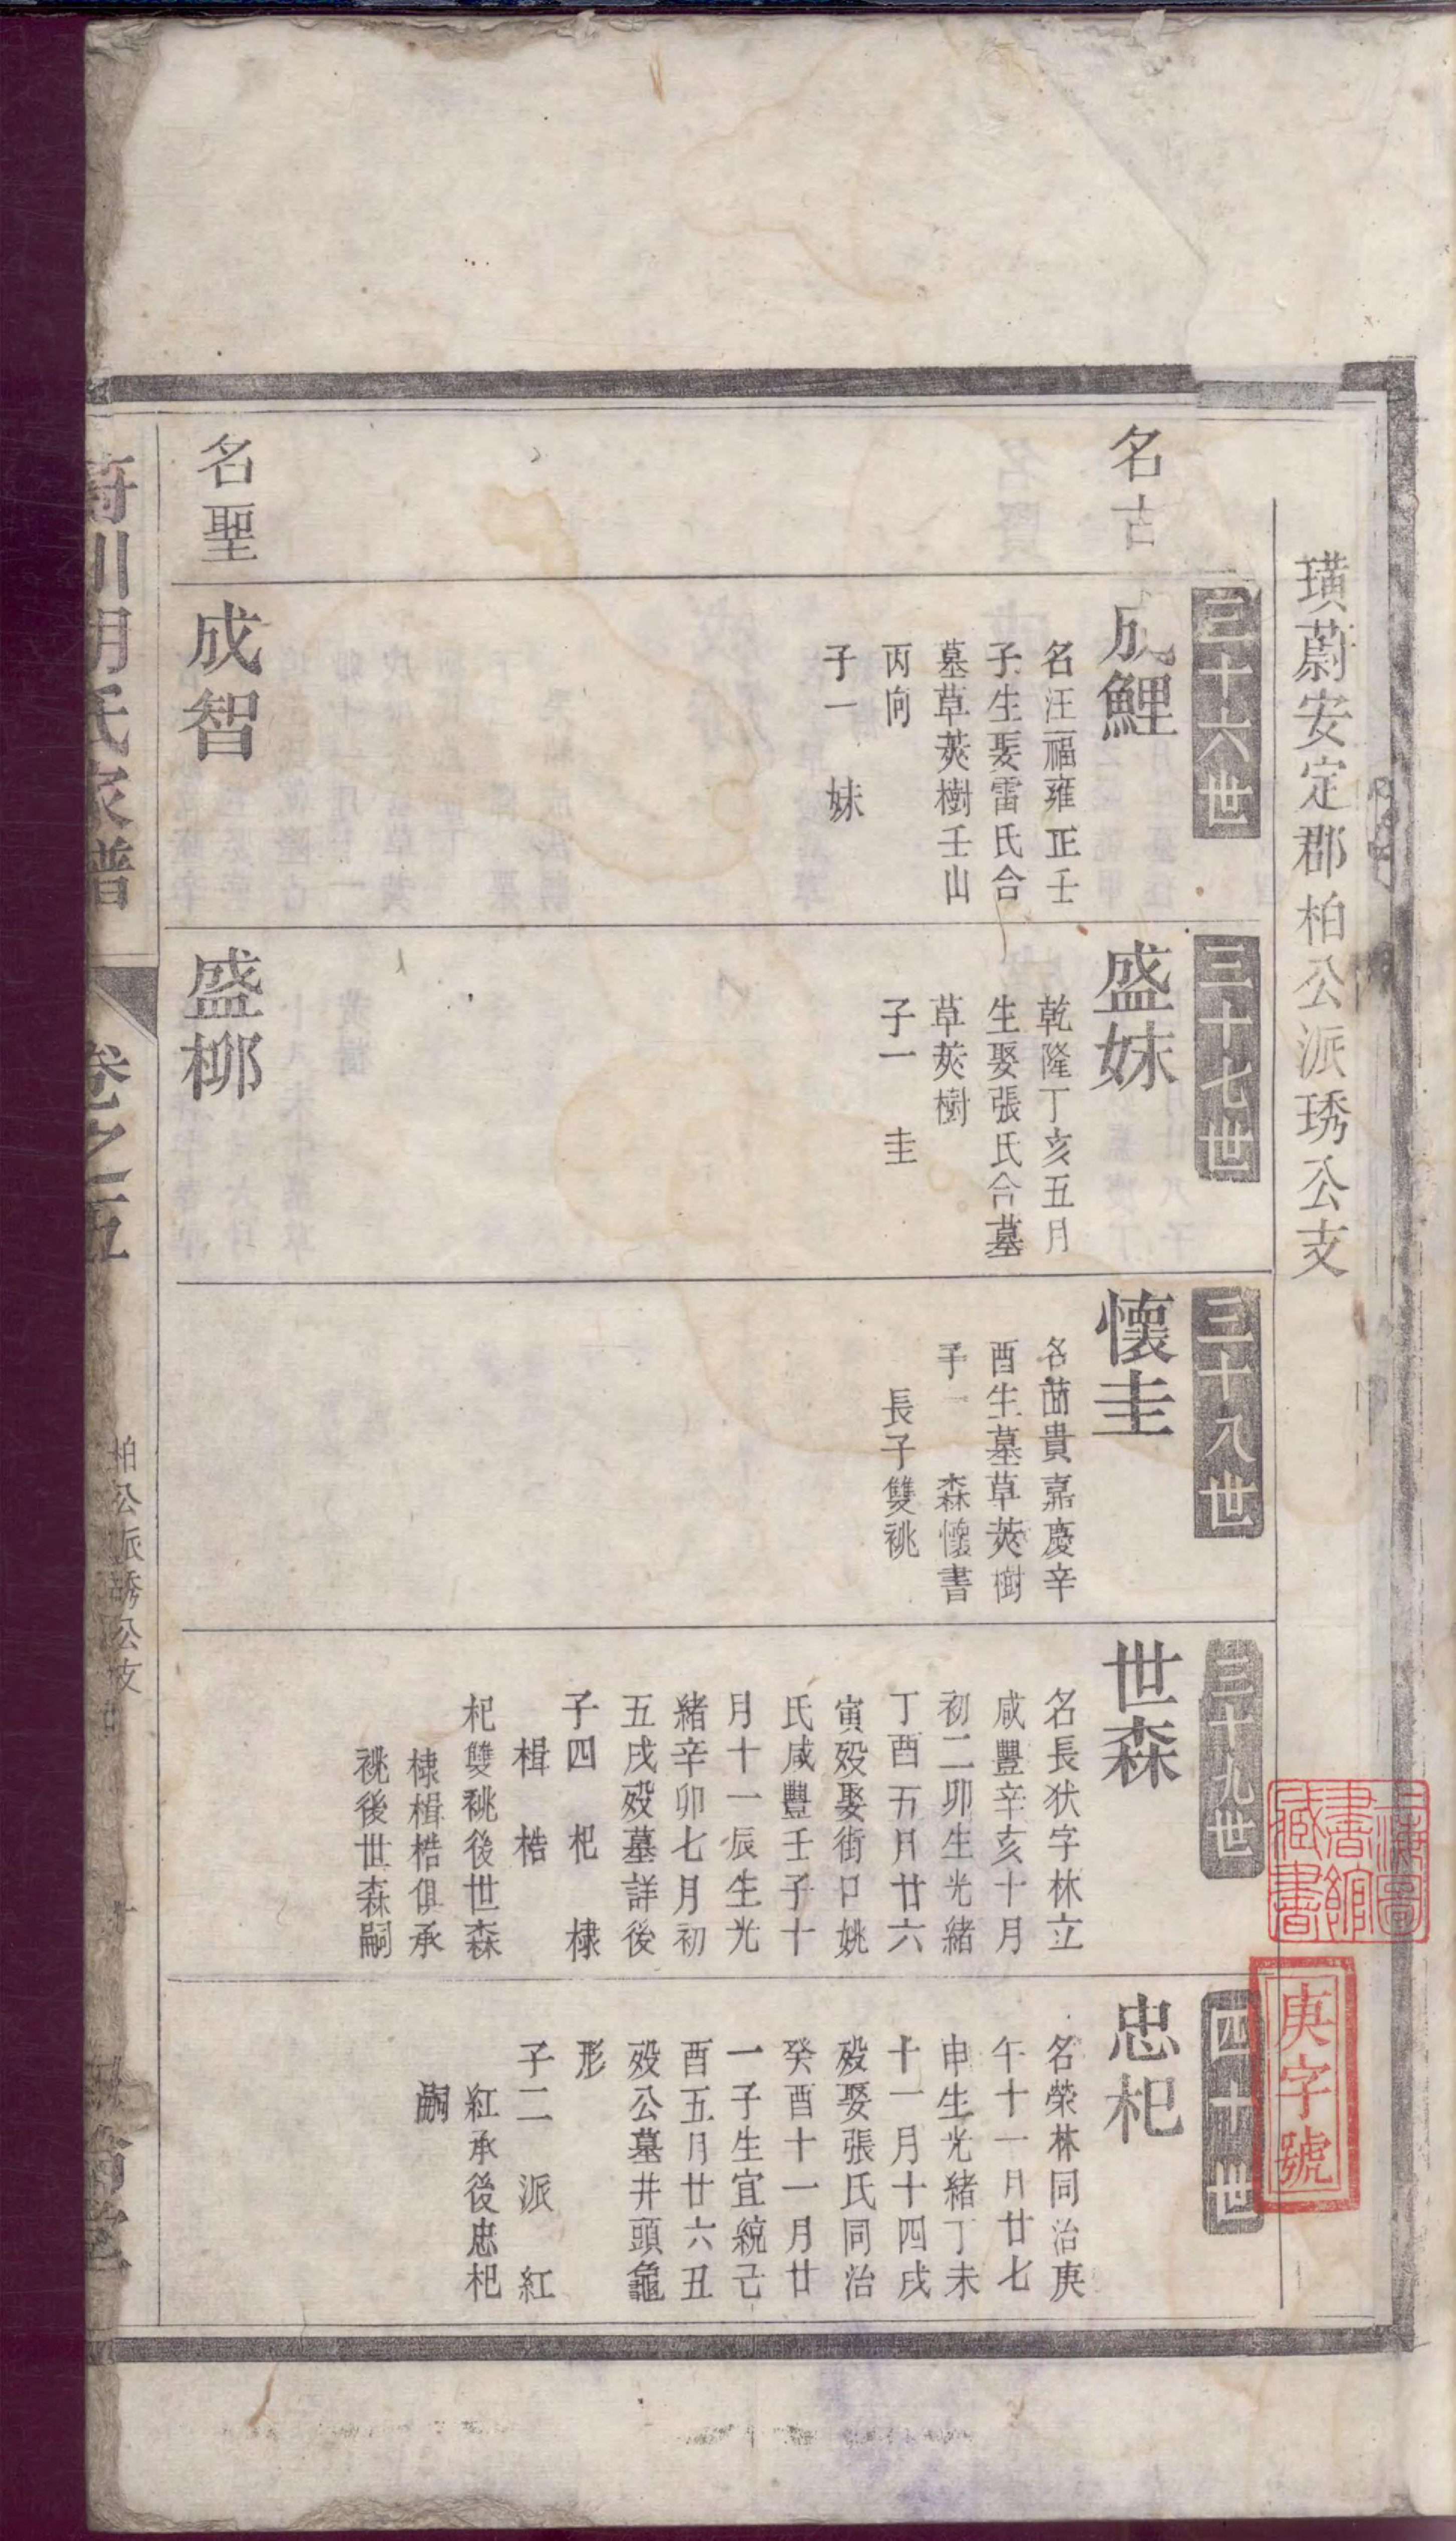 璜蔚安定郡柏公派琇公支
名古
三十六世
成鯉
名汪福雍正壬
子生娶雷氏合
墓草莢樹壬山
丙向
子一　妹
三十七世
盛妹
乾隆丁亥五月
生娶張氏合墓
草莢樹
子一　圭
三十八世
懷圭
名茵貴嘉慶辛
酉生墓草莢樹
子一　森懷書
長子雙祧
三十九世
世森
名長狀字林立
咸豐辛亥十月
初二卯生光緒
丁酉五月廿六
寅歿娶街口姚
氏咸豐壬子十
月十一辰生光
緒辛卯七月初
五戌歿墓詳後
子四　杞　棣
楫　楛
杞雙祧後世森
棣楫楛俱承
祧後世森嗣
四十世
忠杞
名榮林同治庚
午十一月廿七
申生光緒丁未
十一月十四戌
歿娶張氏同治
癸酉十一月廿
一子生宜統己
酉五月廿六丑
歿公墓井頭龜
形
子二　派　紅
紅承後忠杞
嗣
名聖
成智
盛柳
川胡氏家譜
卷之五
柏公派琇公支
上海圖書館藏書
庚字號